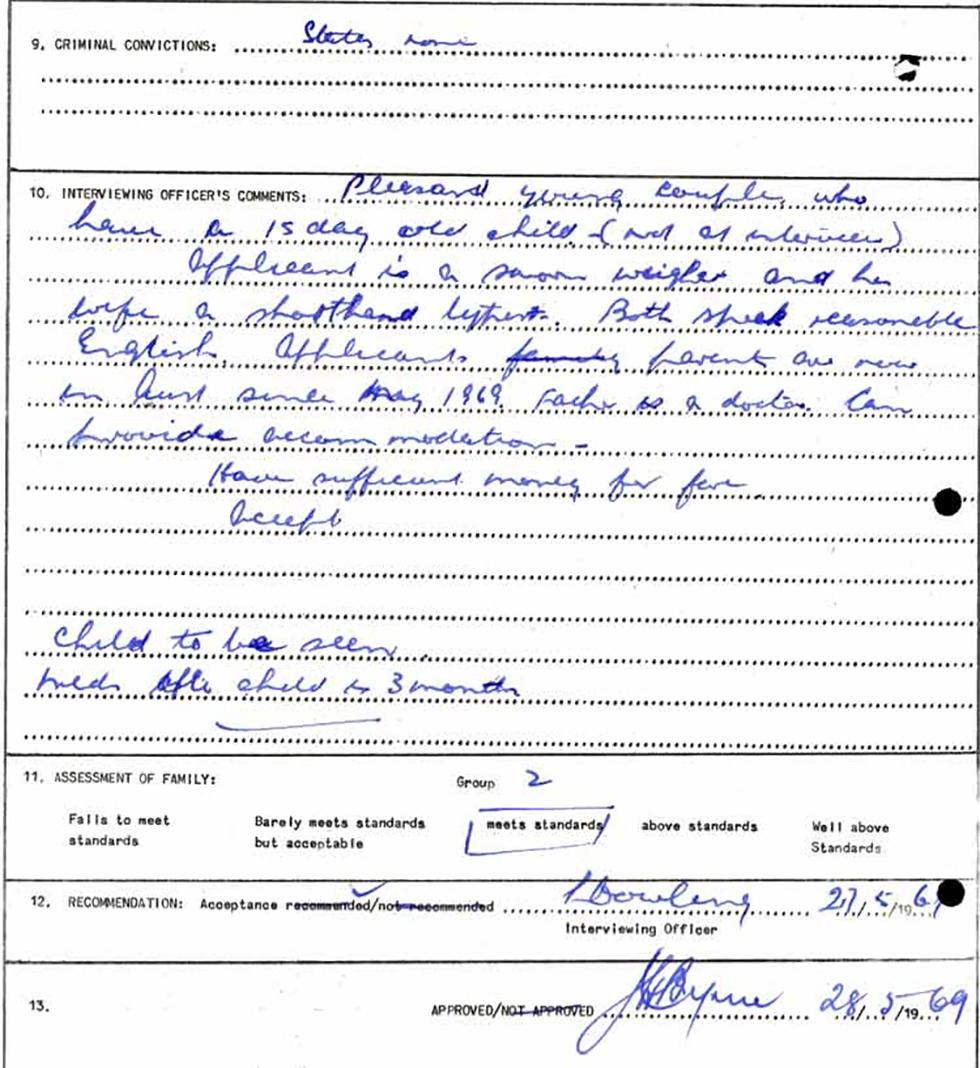 9. CRIMINAL CONVICTIONS: States none
10. INTERVIEWING OFFICER'S COMMENTS: Pleasant young couple who
have a 15 day old child - (not at interview)
Applicant is a weigher and his
wife a shorthand typist. Both speak reasonable
English. Applicants family parent are now
in Aust since May 1969. Father is a doctor. Can
provide accommodation -
Have sufficient money for fare
Accept
Child to be seen.
Meds after child is 3 months
11. ASSESSMENT OF FAMILY: Group 2
Fails to meet standards Barely meets standards but acceptable meets standards above standards Well above Standards
12. RECOMMENDATION: Acceptance recommended/not recommended Dowling 27/5/1969
Interviewing Officer
13. APPROVED/NOT APPROVED Byrne 28/5/1969